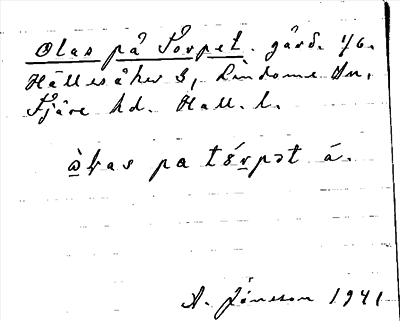 Olas på Torpet. gård. 1/6.
Hällesåker 3, Lindome sn,
Fjäre hd. Hall. l.
ò̲ɫas pa tó̲rpət á.
A. Jónsson 1941